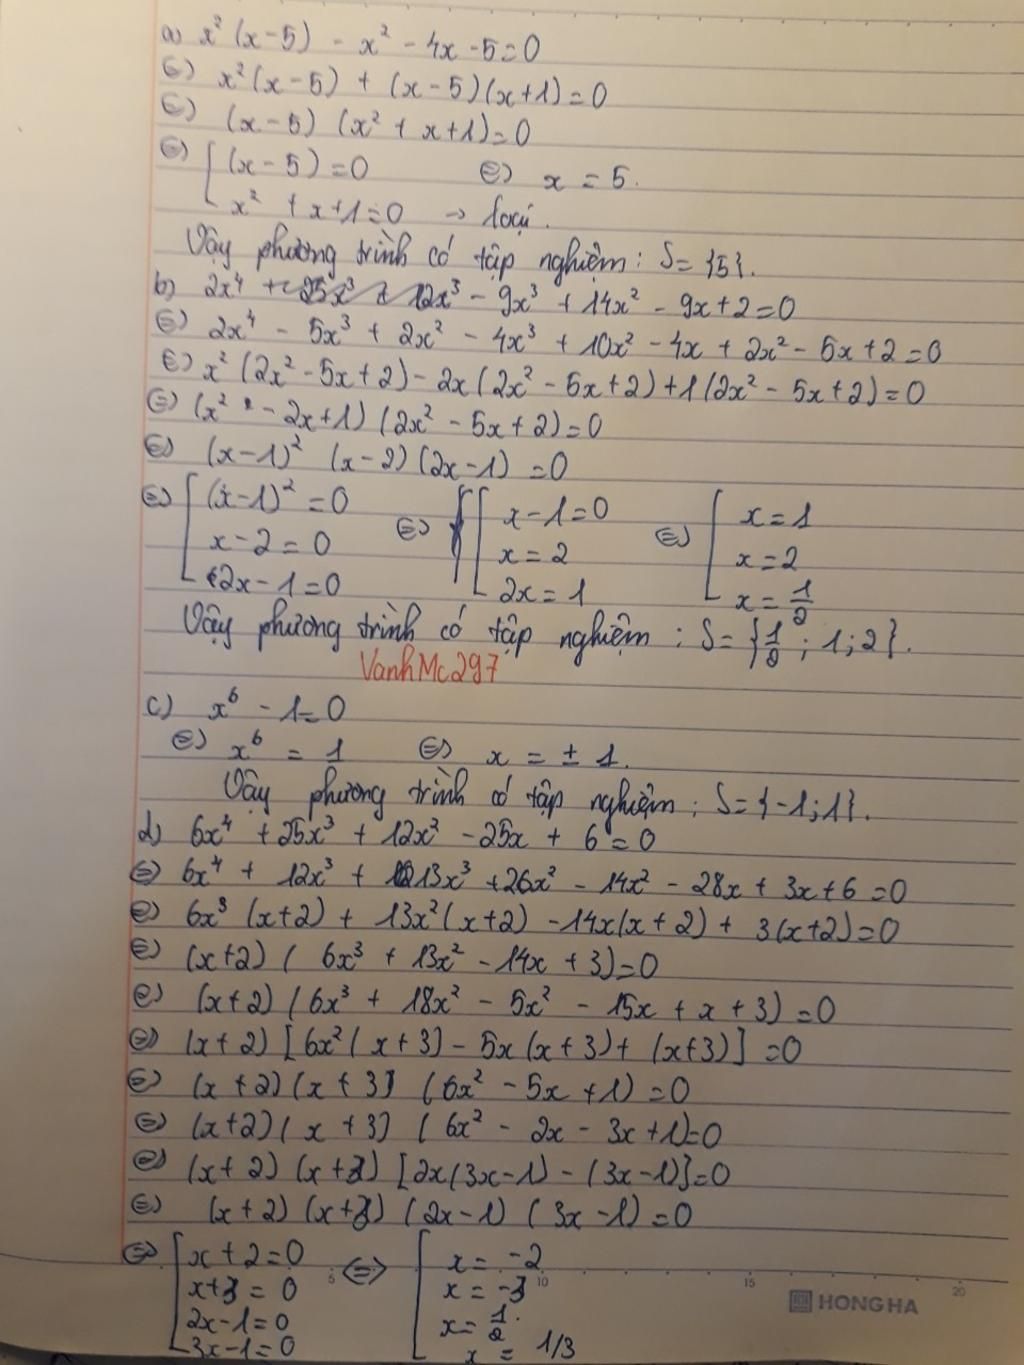 a) x² (x-5) - x² - 4x - 5 = 0
⇔) x² (x-5) + (x-5)(x+1) = 0
⇔) (x-5) (x² + x+1) = 0
⇔) [ (x-5) = 0 ⇔) x = 5.
x² + x+1 = 0 → loại.
Vậy phương trình có tập nghiệm: S= {5}.
b) 2x⁴ - 9x³ + 14x² - 9x + 2 = 0
⇔) 2x⁴ - 5x³ + 2x² - 4x³ + 10x² - 4x + 2x² - 5x + 2 = 0
⇔) x² (2x² - 5x + 2) - 2x (2x² - 5x + 2) + 1 (2x² - 5x + 2) = 0
⇔) (x² - 2x + 1) (2x² - 5x + 2) = 0
⇔) (x-1)² (x-2) (2x-1) = 0
⇔) [ (x-1)² = 0 ⇔) [ x-1 = 0 ⇔) [ x = 1
x - 2 = 0 x = 2 x = 2
2x - 1 = 0 2x = 1 x = 1/2
Vậy phương trình có tập nghiệm: S= {1/2 ; 1 ; 2}.
VanhMc297
c) x⁶ - 1 = 0
⇔) x⁶ = 1 ⇔) x = ± 1.
Vậy phương trình có tập nghiệm: S= {-1; 1}.
d) 6x⁴ + 25x³ + 12x² - 25x + 6 = 0
⇔) 6x⁴ + 12x³ + 13x³ + 26x² - 14x² - 28x + 3x + 6 = 0
⇔) 6x³ (x+2) + 13x² (x+2) - 14x (x+2) + 3(x+2) = 0
⇔) (x+2) ( 6x³ + 13x² - 14x + 3) = 0
⇔) (x+2) (6x³ + 18x² - 5x² - 15x + x + 3) = 0
⇔) (x+2) [6x² ( x+3) - 5x (x+3) + (x+3)] = 0
⇔) (x+2) (x+3) (6x² - 5x + 1) = 0
⇔) (x+2) ( x+3) ( 6x² - 2x - 3x + 1) = 0
⇔) (x+2) (x+3) [2x (3x-1) - (3x-1)] = 0
⇔) (x+2) (x+3) (2x-1) (3x-1) = 0
⇔) [ x+2 = 0 ⇔ [ x = -2
x+3 = 0 x = -3
2x-1 = 0 x = 1/2
3x-1 = 0 x = 1/3
5 10 15 20
HONG HA